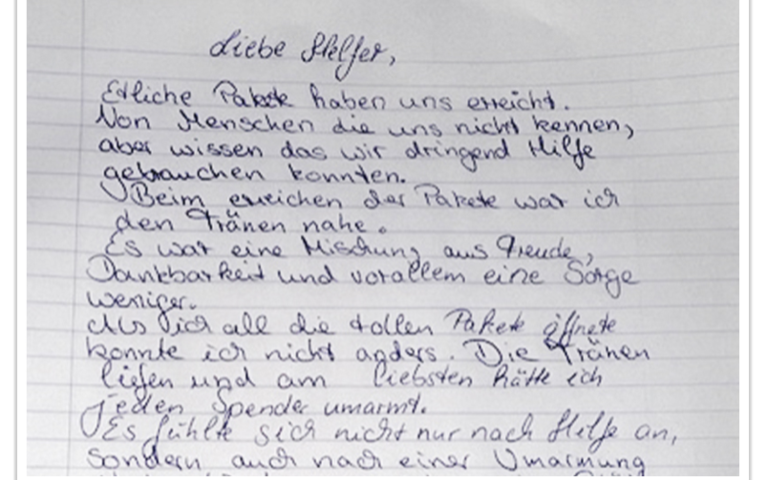 Liebe Helfer,
Etliche Pakete haben uns erreicht.
Von Menschen die uns nicht kennen,
aber wissen das wir dringend Hilfe
gebrauchen konnten.
Beim erreichen der Pakete war ich
den Tränen nahe.
Es war eine Mischung aus Freude,
Dankbarkeit und vorallem eine Sorge
weniger.
Als ich all die tollen Pakete öffnete
konnte ich nicht anders. Die Tränen
liefen und am liebsten hätte ich
jeden Spender umarmt.
Es fühlte sich nicht nur nach Hilfe an,
sondern auch nach einer Umarmung